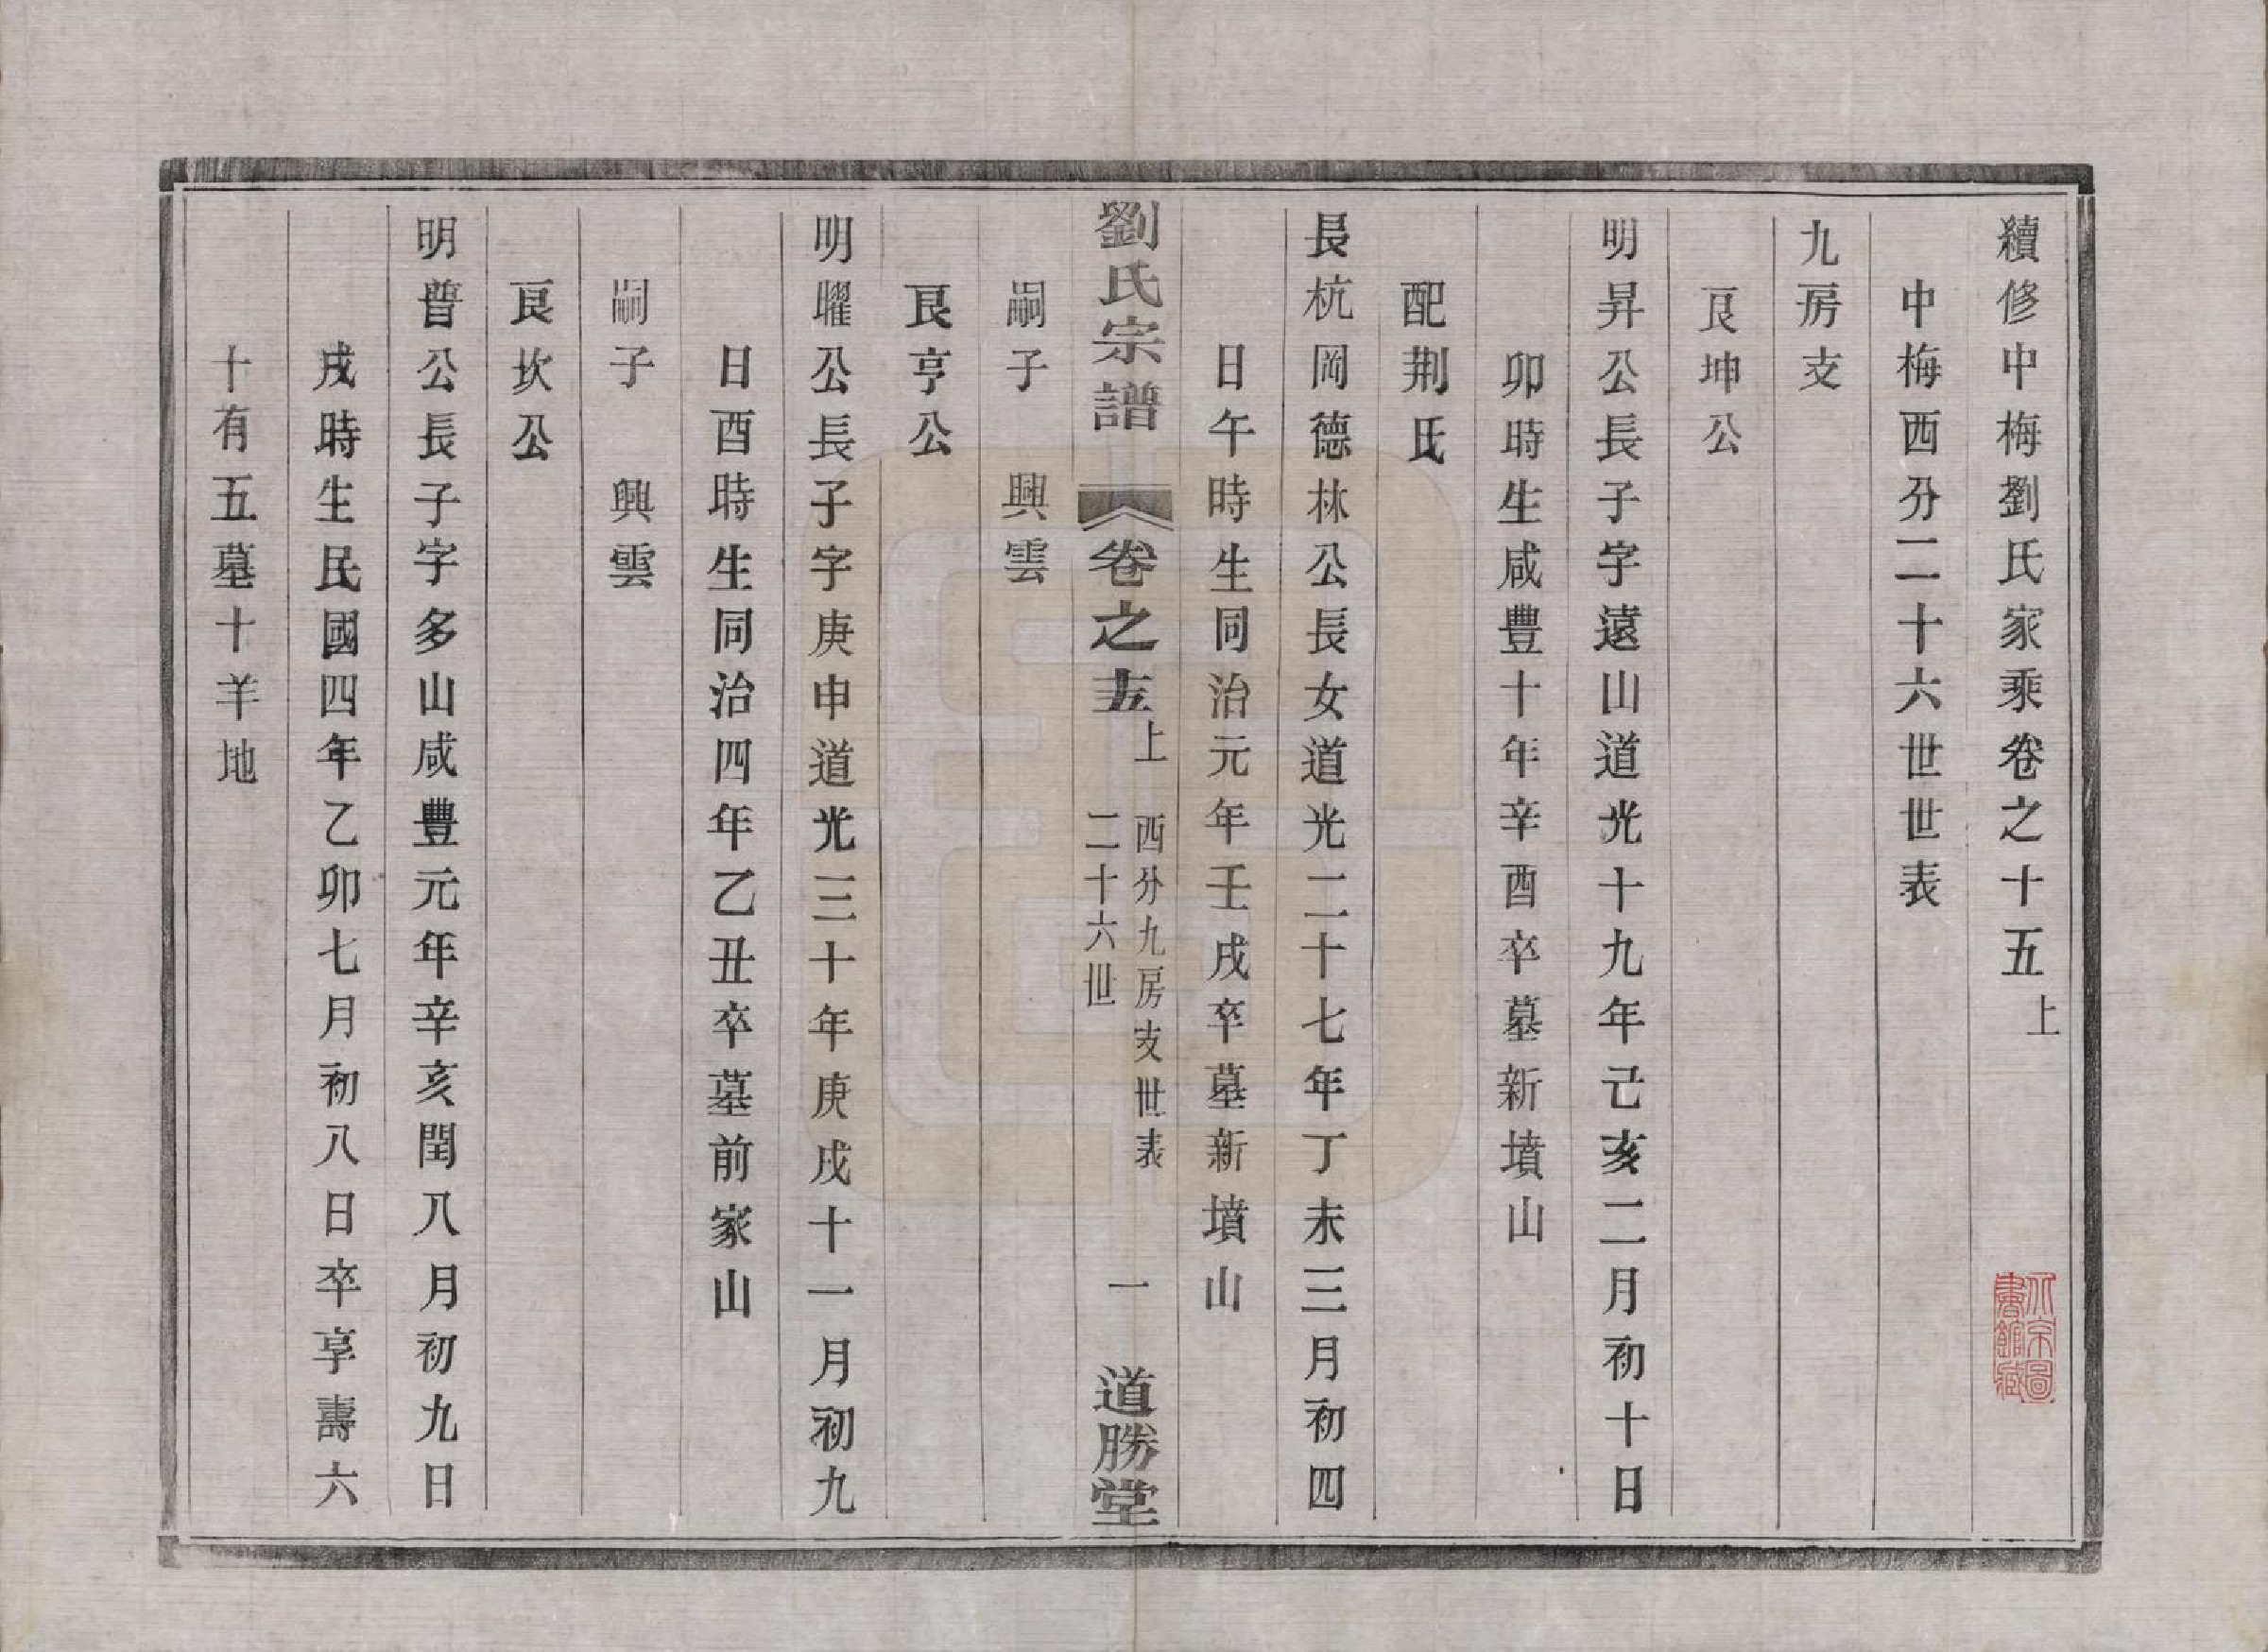 續修中梅劉氏家乘卷之十五上
中梅西分二十六世世表
九房支
良坤公
明昇公長子字遠山道光十九年己亥二月初十日
卯時生咸豐十年辛酉卒墓新墳山
配荆氏
長杭岡德林公長女道光二十七年丁未三月初四
日午時生同治元年壬戌卒墓新墳山
劉氏宗譜
卷之十五上
西分九房支世表
二十六世
一
道勝堂
嗣子 興雲
艮亨公
明曜公長子字庚申道光三十年庚戌十一月初九
日酉時生同治四年乙丑卒墓前家山
嗣子 興雲
良坎公
明普公長子字多山咸豐元年辛亥閏八月初九日
戌時生民國四年乙卯七月初八日卒享壽六
十有五墓十羊地
北京圖
書館藏